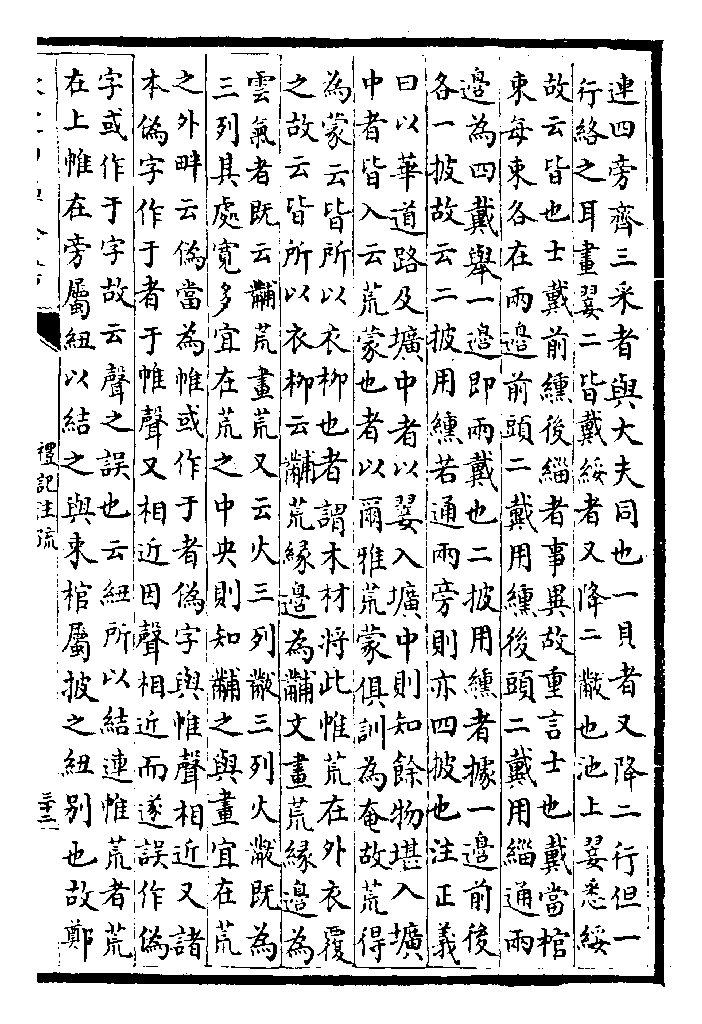 連四旁齊三采者與大夫同也一貝者又降二行但一
行絡之耳畫翣二皆戴綏者又降二黻也池上翣悉綏
故云皆也士戴前纁後緇者事異故重言士也戴當棺
束每束各在兩邉前頭二戴用纁後頭二戴用緇通兩
邉為四戴舉一邉即兩戴也二披用纁者據一邉前後
各一披故云二披用纁若通兩旁則亦四披也注正義
曰以華道路及壙中者以翣入壙中則知餘物堪入壙
中者皆入云荒蒙也者以爾雅荒蒙俱訓為奄故荒得
為蒙云皆所以衣柳也者謂木材將此帷荒在外衣覆
之故云皆所以衣柳云黼荒緣邉為黼文畫荒緣邉為
雲氣者既云黼荒畫荒又云火三列黻三列火黻既為
三列其處寛多宜在荒之中央則知黼之與畫宜在荒
之外畔云偽當為帷或作于者偽字與帷聲相近又諸
本偽字作于者于帷聲又相近因聲相近而遂誤作偽
字或作于字故云聲之誤也云紐所以結連帷荒者荒
在上帷在旁屬紐以結之與束棺屬披之紐别也故鄭
禮記注疏
三十二